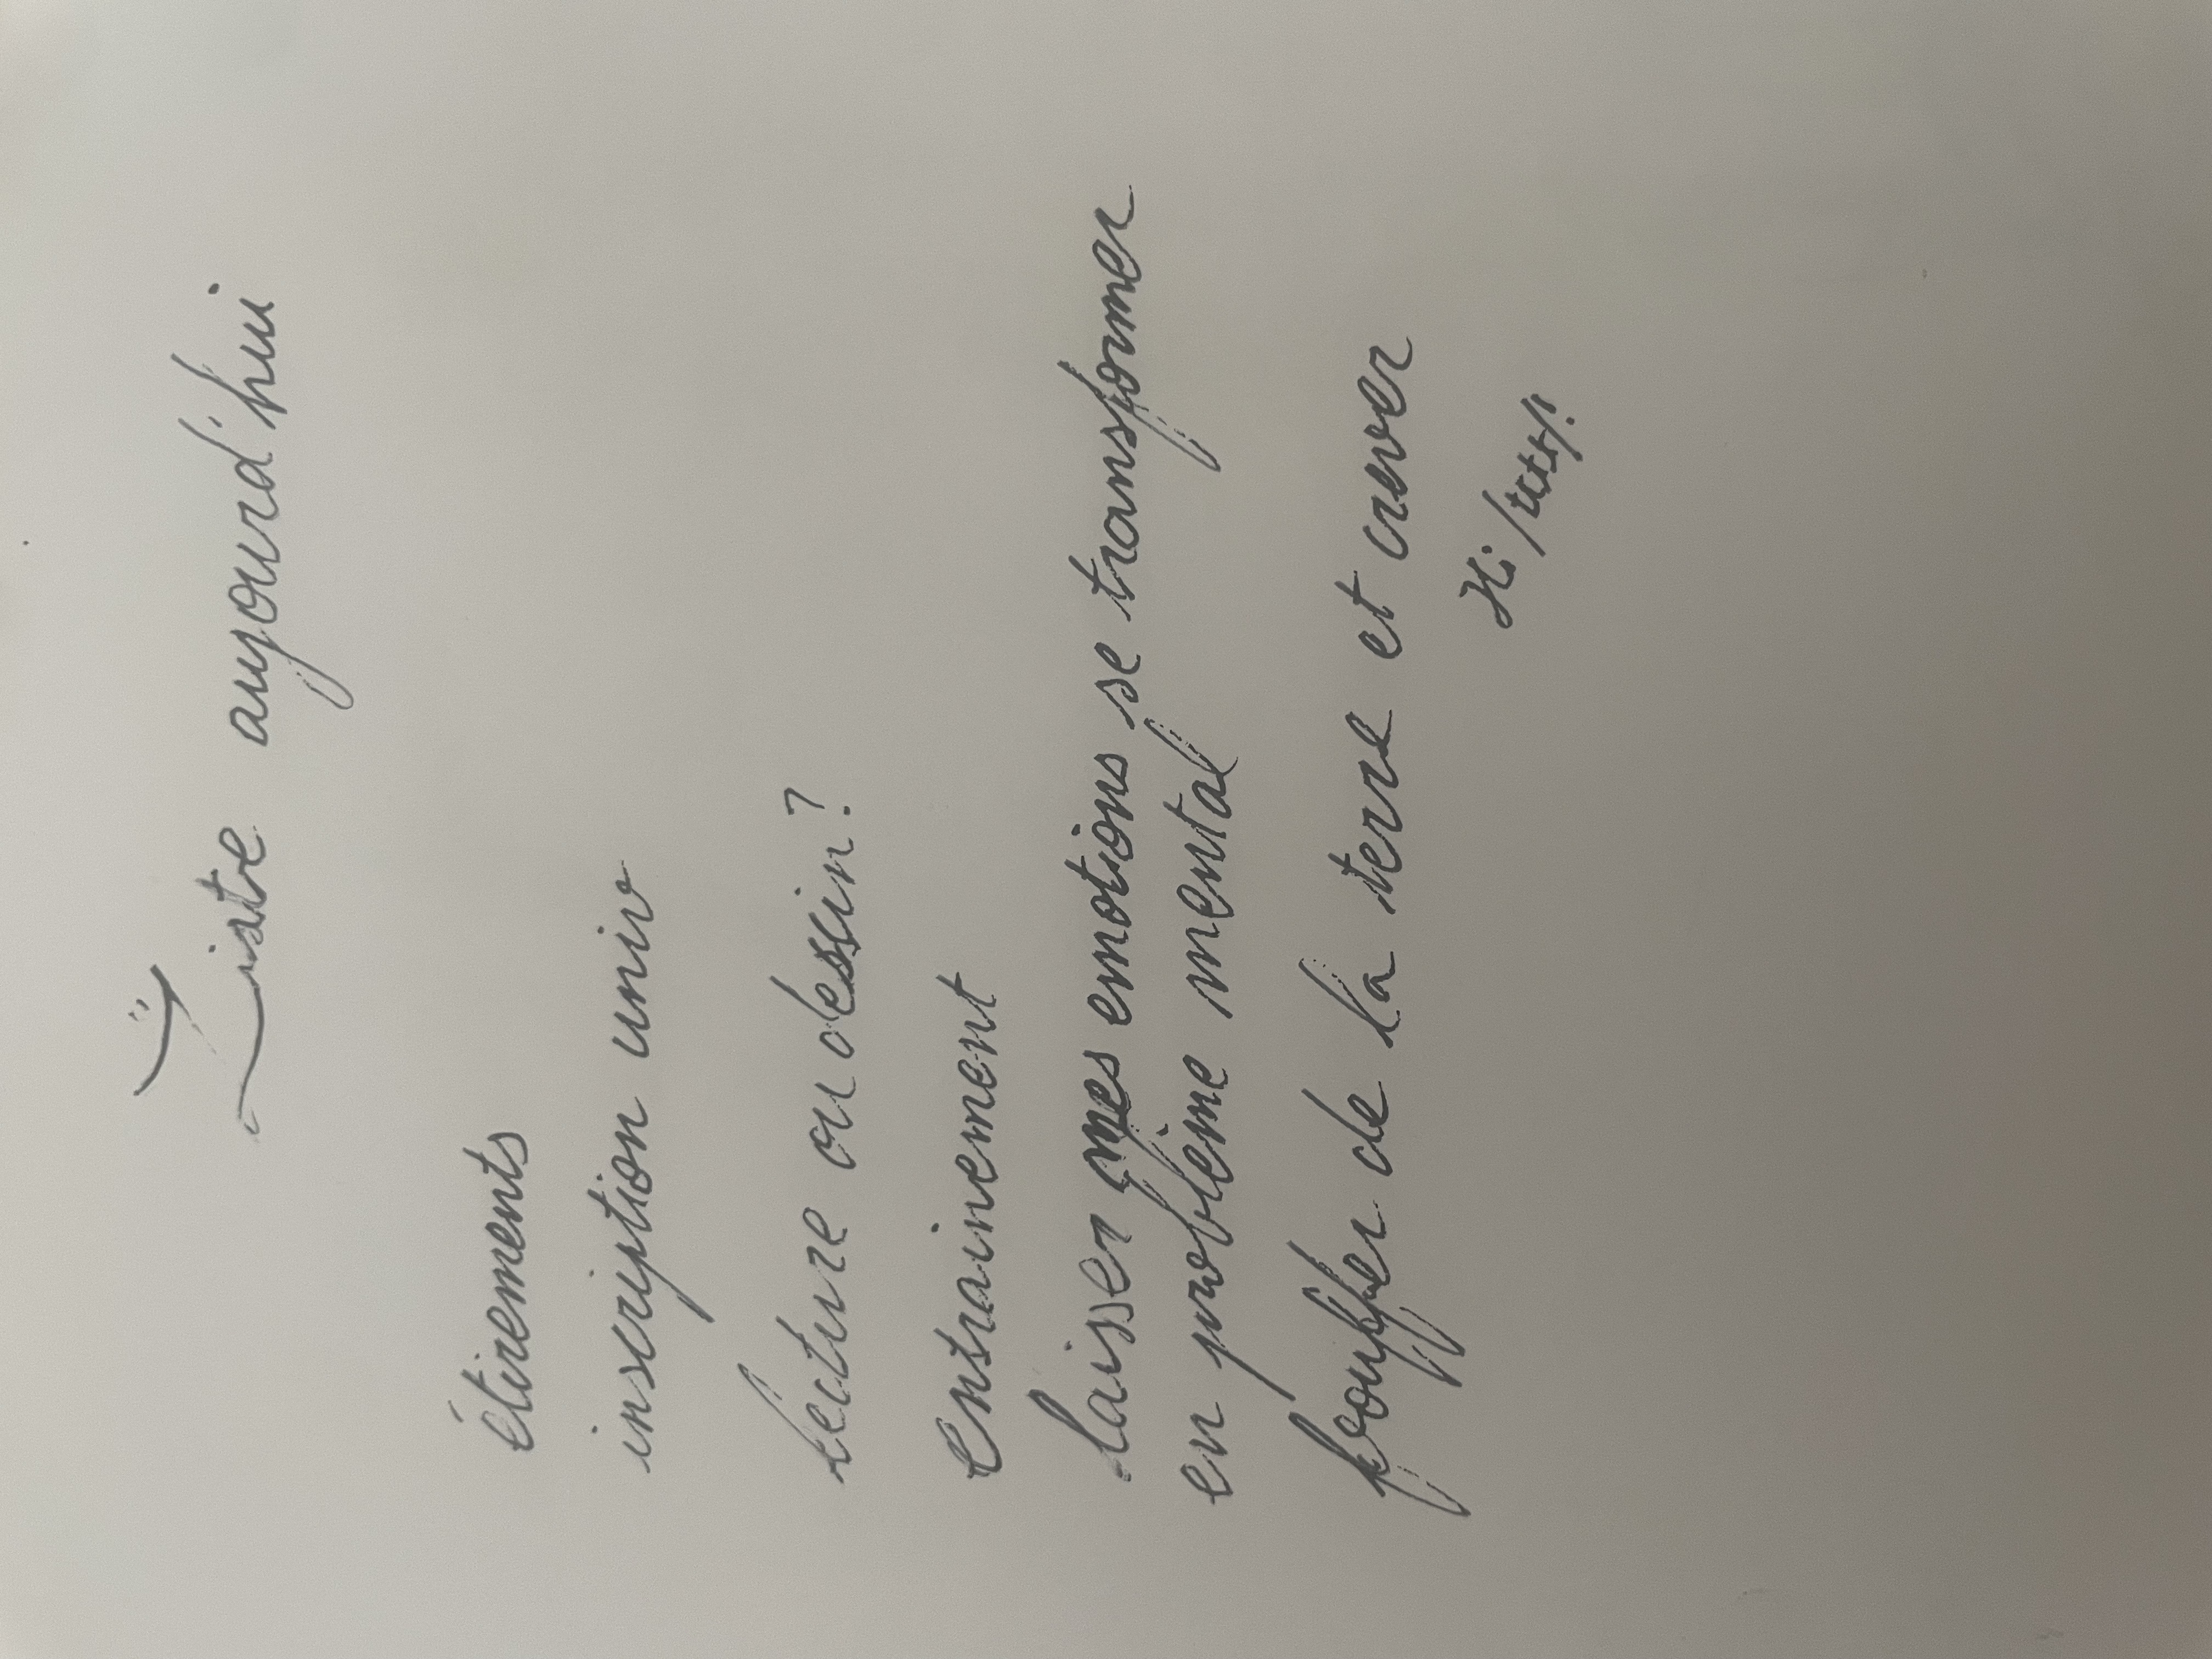 Liste aujourd'hui
étirements
inscription univ
lecture ou dessin?
entrainement
laisser mes emotions se transformer
en problème mental
bouffer de la terre et crever